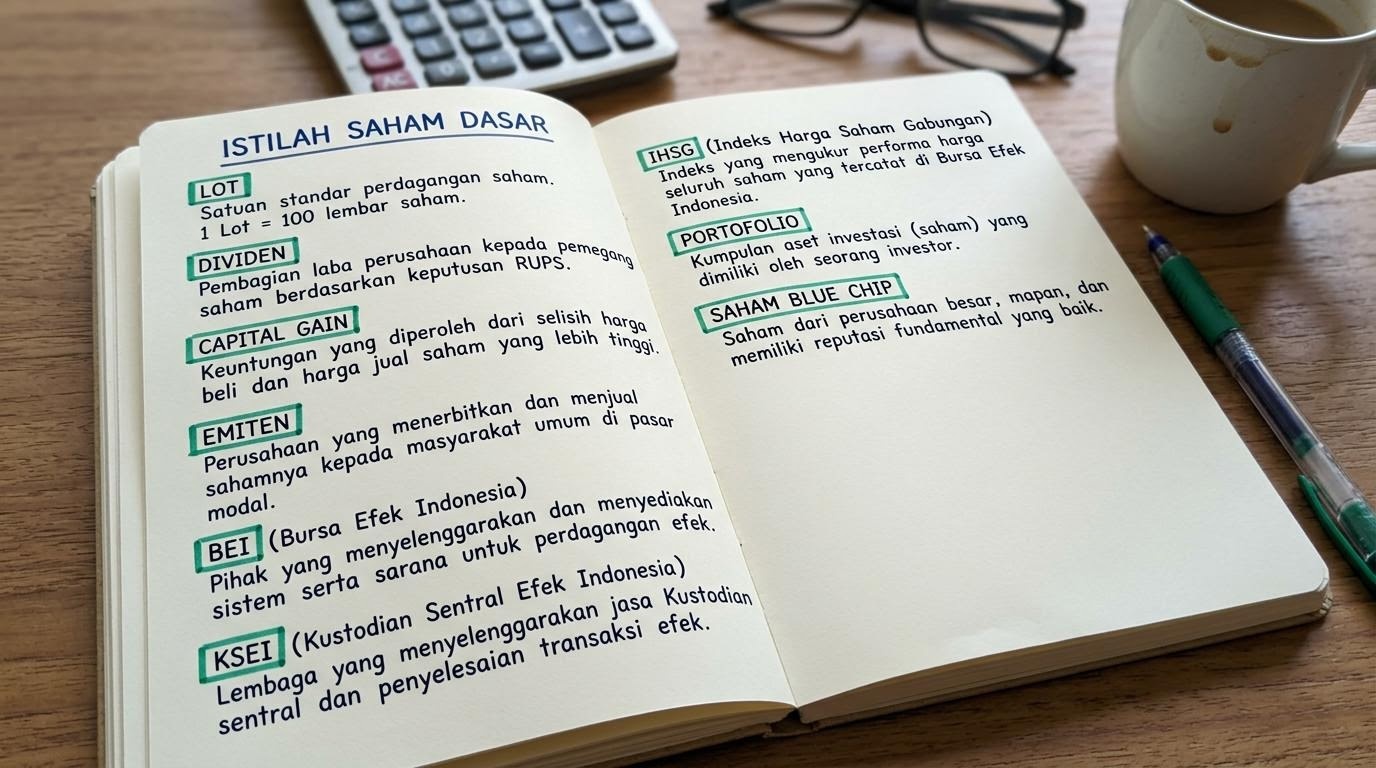 ISTILAH SAHAM DASAR
LOT
Satuan standar perdagangan saham.
1 Lot = 100 lembar saham.
DIVIDEN
Pembagian laba perusahaan kepada pemegang
saham berdasarkan keputusan RUPS.
CAPITAL GAIN
Keuntungan yang diperoleh dari selisih harga
beli dan harga jual saham yang lebih tinggi.
EMITEN
Perusahaan yang menerbitkan dan menjual
sahamnya kepada masyarakat umum di pasar
modal.
BEI (Bursa Efek Indonesia)
Pihak yang menyelenggarakan dan menyediakan
sistem serta sarana untuk perdagangan efek.
KSEI (Kustodian Sentral Efek Indonesia)
Lembaga yang menyelenggarakan jasa Kustodian
sentral dan penyelesaian transaksi efek.
IHSG (Indeks Harga Saham Gabungan)
Indeks yang mengukur performa harga
seluruh saham yang tercatat di Bursa Efek
Indonesia.
PORTOFOLIO
Kumpulan aset investasi (saham) yang
dimiliki oleh seorang investor.
SAHAM BLUE CHIP
Saham dari perusahaan besar, mapan, dan
memiliki reputasi fundamental yang baik.